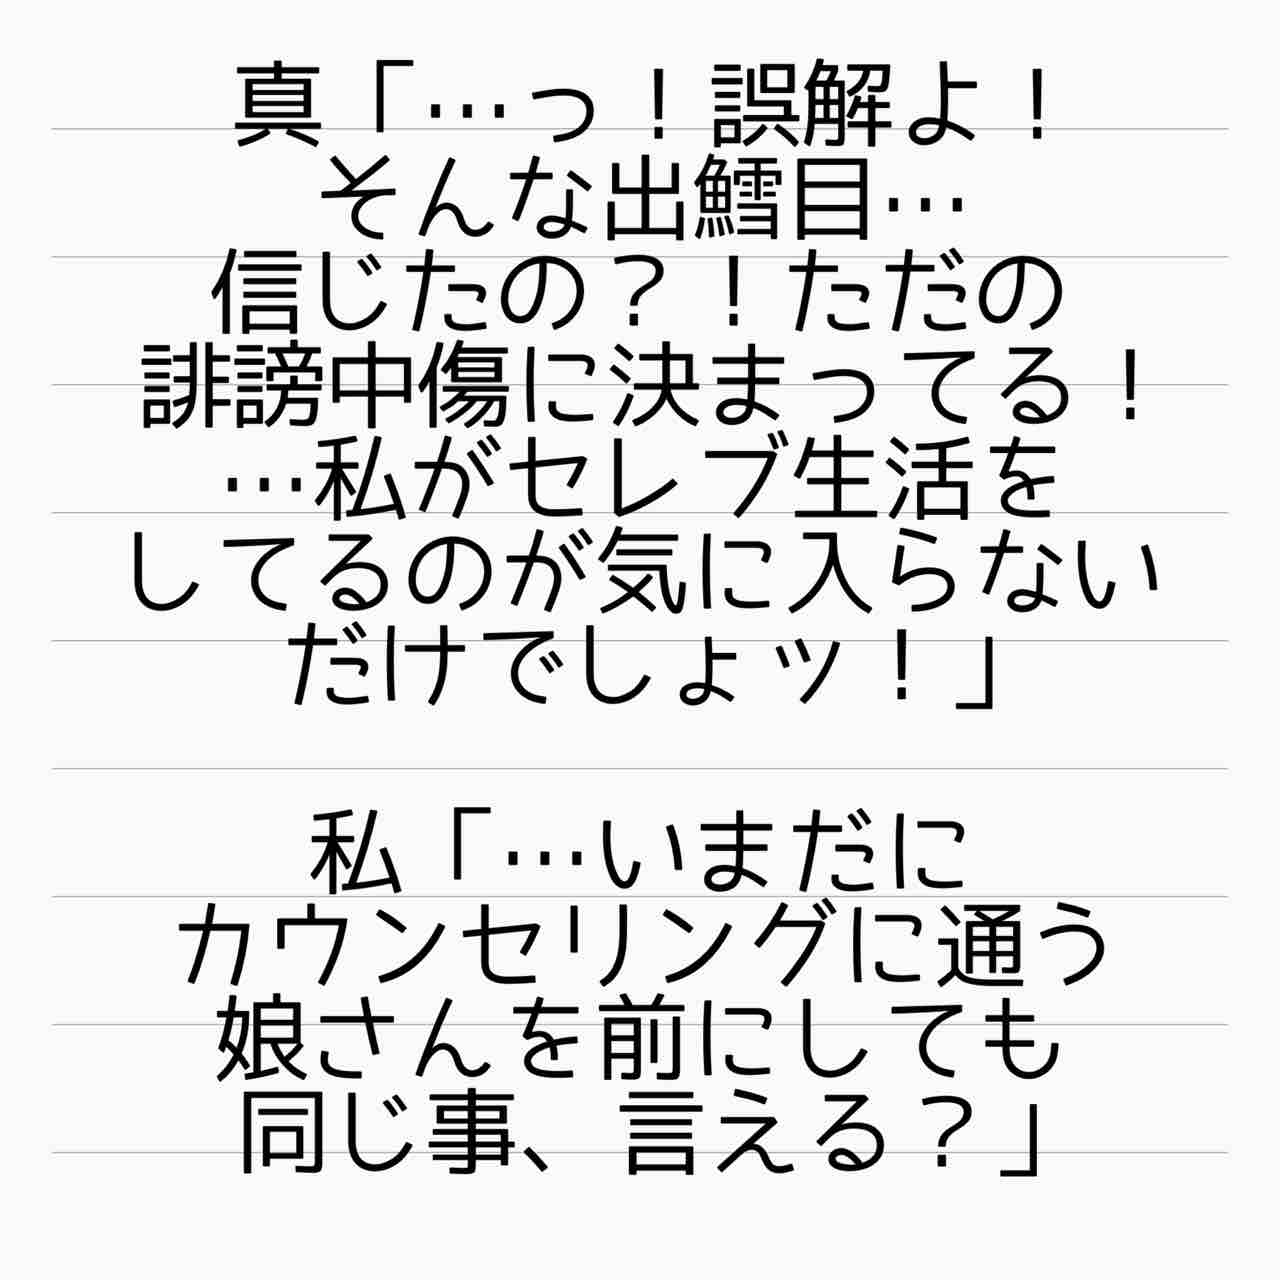 真「…っ！誤解よ！
そんな出鱈目…
信じたの？！ただの
誹謗中傷に決まってる！
…私がセレブ生活を
してるのが気に入らない
だけでしょッ！」
私「…いまだに
カウンセリングに通う
娘さんを前にしても
同じ事、言える？」